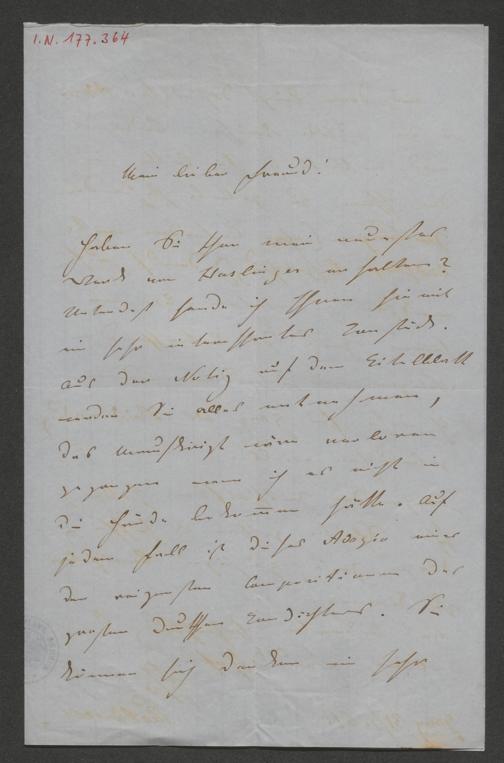 I.N. 177.364
Mein lieber Freund!
Haben Sie schon mein neuestes
Werk von Haslinger erhalten?
Unterdeß sende ich Ihnen hiemit
ein sehr interessantes Tonstück.
Aus der Notiz auf dem Titelblatt
werden Sie alles entnehmen,
das Manuskript wäre verloren
gegangen wenn ich es nicht in
die Hände bekommen hätte. Auf
jeden Fall ist dieses Adagio eines
der reizendsten Compositionen des
großen deutschen Tondichters. Sie
können sich denken wie sehr